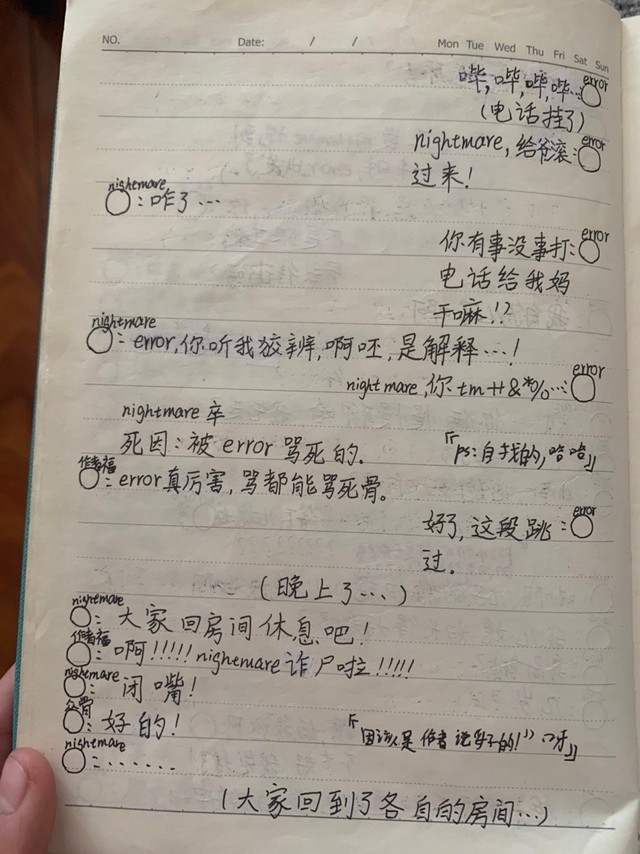 NO. Date: / / Mon Tue Wed Thu Fri Sat Sun
哔,哔,哔,哔… error
(电话挂了)
nightmare,给爸滚: error
过来!
nightmare
:咋了…
你有事没事打: error
电话给我妈
干嘛!?
nightmare
:error,你听我狡辨,啊呸,是解释…!
nightmare,你tm++&*%…: error
nightmare 卒
死因:被error骂死的.
『ps:自找的,哈哈』
作者福
:error真厉害,骂都能骂死骨。
好了,这段跳: error
过.
(晚上了…)
nightmare
:大家回房间休息吧!
作者福
:啊!!!!!nightmare诈尸啦!!!!!
nightmare
:闭嘴!
众骨
:好的!
nightmare
:……
(大家回到了各自的房间…)